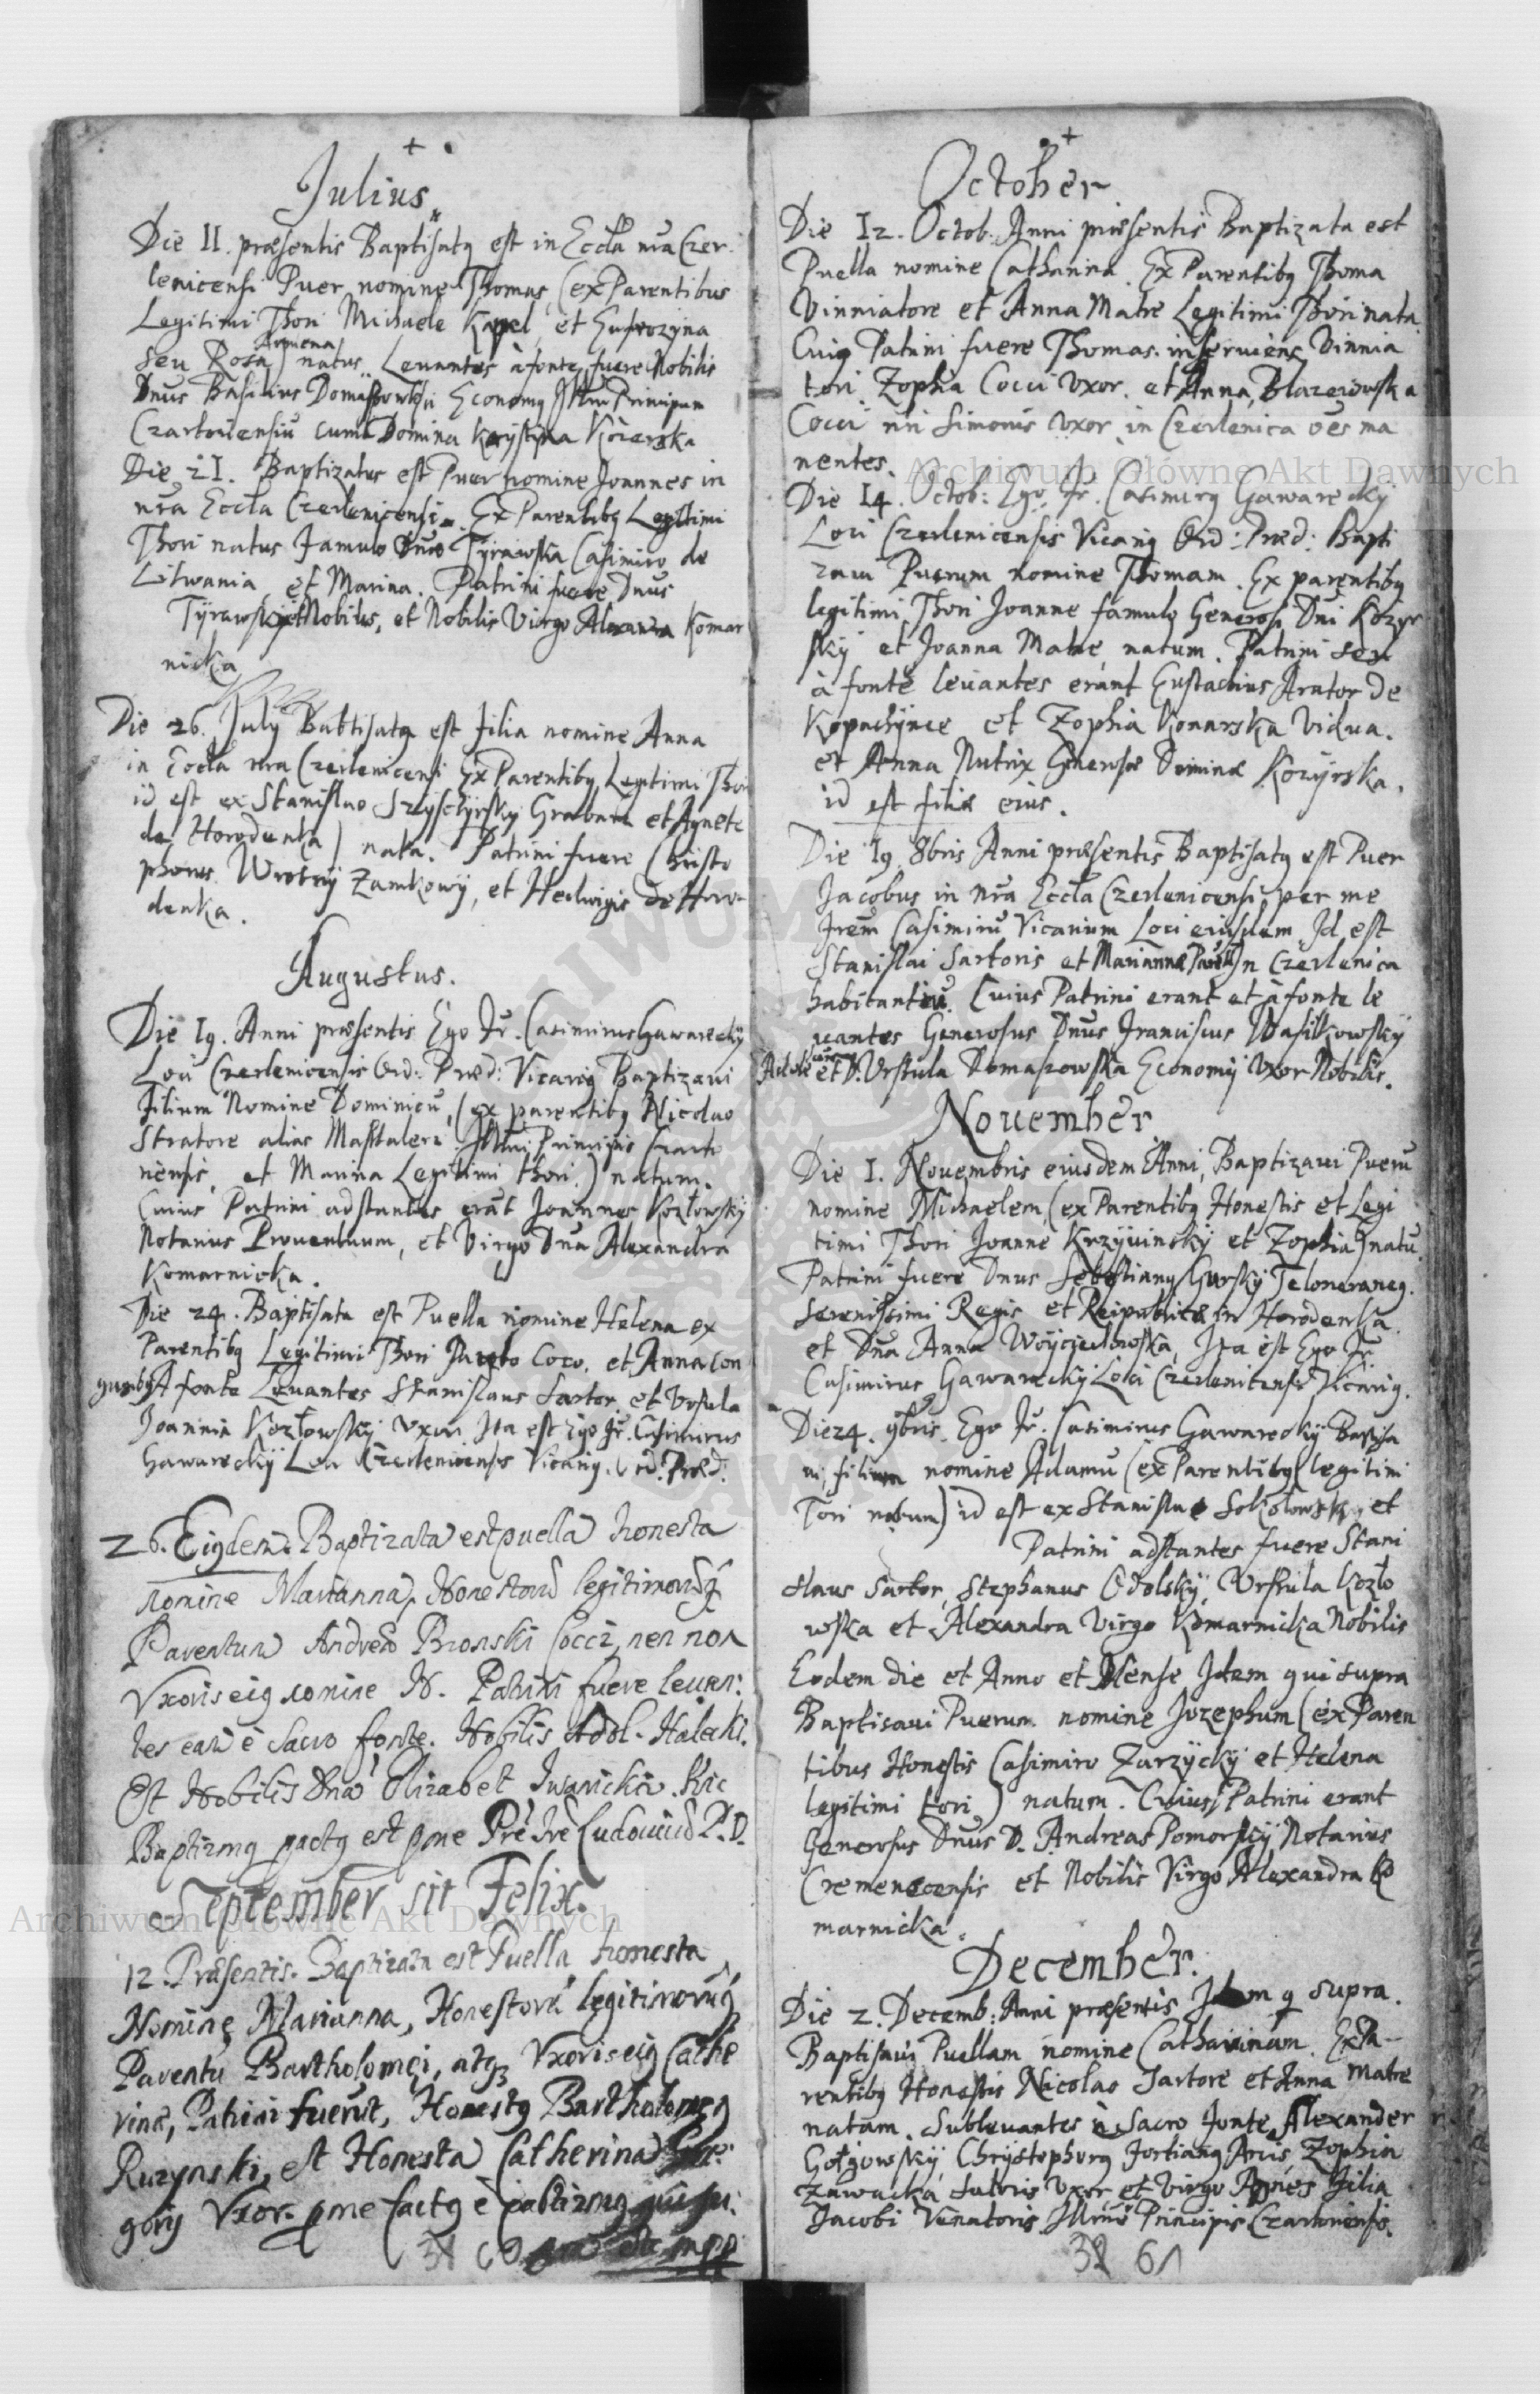 Julius
Die II. præsentis Baptisatq est in Eccla nra Czer
lenicensi Puer nomine Thomas (ex Parentibus
Legitimi Thori Michaele Kapel, et Eufrozyna
seu Rosa Armena) natus. Levantes à fonte fuere Nobilis
Dnus Basilius Economq Principum
cum Domina Krystina
Die 2I. Baptizatus est Puer nomine Joannes in
nra Eccla Czerlenicensi. Ex Parentibq Legitimi
Thori natus famulo Tyrawska Casimiro de
Litwania, et Marina. Patrini fuere Dnus
Tyrawsky et Nobilis, et Nobilis Virgo Alexandra Komar
nicka
Die 26. July Babtisata est filia nomine Anna
in Eccla nra Czerlenicensi Ex Parentibq Legitimi Thori
id est ex Stanislao et Agnete
de Horodenka) nata. Patrini fuere Christo
phorus Zamkowy, et Hedwigis de Horo-
denka.
Augustus.
Die I9. Anni præsentis Ego Fr. Casimirus Gawarecky
Loci Czerlenicensis Ord: Præd: Vicariq Baptizavi
filium Nomine Dominicu, (ex parentibq Nicolao
Stratore alias Mastalerz Principis Czarto
riensis, et Marina Legitimi thori) natum.
Cuius Patrini adstantes erāt Joannes Kozłowsky
Notarius Proventuum, et Virgo Dna Alexandra
Komarnicka.
Die 24. Baptisata est Puella nomine Helena ex
Parentibq Legitimi Thori Coco, et Anna Con
jugibq A fonte Levantes Stanislaus Sartor, et Ursula
Joannis Kozłowsky uxor Ita est Ego Fr. Casimirus
Gawarecky Loci Czerlenicensis Vicariq. Ord. Præd.
26. Eiqdem. Baptizata est puella honesta
nomine Marianna, Honestorū legitimorūq
Parentum Andreæ Bronski Cocci, nen non
Vxoris eiq nomine N. Patrini fuere levan:
tes eam è Sacro fonte. Nobilis Adol. Halecki.
Et Nobilis Dna Elizabet Hic
Baptizmq factq est pme Pre Fre Ludovicū P. D.
September sit Felix.
12. Præsentis. Baptizata est Puella honesta
Nomine Marianna, Honestorū legitimorūq
Parentu Bartholomei, atq3 Vxoris eiq Cathe
rinæ, Patrini fuerūt, Honestq Bartholomeq
Ruzynski, et Honesta Catherina Gre:
gorij Vxor. pme factq è pabtizmq
October
Die I2. Octob: Anni præsentis Baptizata est
Puella nomine Catharina. Ex Parentibq Thoma
Vinniatore et Anna Matre Legitimi Thori nata.
Cuiq Patrini fuere Thomas inserviens Vinnia
tori. Zophia Cocci Vxor. et Anna Blazeiowska
Cocci Simonis Vxor in Czerlenica oēs ma
nentes.
Die I4. Octob: Ego Fr. Casimirq Gawarecky
Loci Czerlenicensis Vicariq Ord: Præd: Bapti
zavi Puerum nomine Thomam. Ex parentibq
legitimi Thori Joanne famulo Generosi Dni Kozyr
sky et Joanna Matre, natum. Patrini seu
à fonte levantes erant Eustachius Arator de
Kopachÿnce et Zophia Konarska Vidua.
et Anna Nutrix Generosæ Dominæ Kozyrska.
id est filiæ eius.
Die I9 8bris Anni præsentis Baptisatq est Puer
Jacobus in nra Eccla Czerlenicensi per me
Frem Casimirū Vicarium Loci eiusdem. Id est
Stanislai Sartoris et Mariannæ in Czerlenica
habitantiū. Cuius Patrini erant et à fonte le
vantes Generosus Dnus Franciscus Wasilkowsky
et D. Ursula Domaszowska Economi Vxor Nobilis.
November
Die I. Novembris eiusdem Anni, Baptizavi Puerū
nomine Michaelem, (ex Parentibq Honestis et Legi
timi Thori Joanne Krzywinsky et Zophia) natū.
Patrini fuere Dnus Sebastianq Gursky Teloneraneq.
Serenissimi Regis et Reipublicæ in Horodenka.
et Dna Anna Woyciechowska, Ita est Ego Fr
Casimirus Gawarecky Loci Czerlenicensis Vicariq.
Die 24. 9bris. Ego Fr. Casimirus Gawarecky Baptisa
vi, filium nomine Adamū (ex Parentibq legitimi
Tori natum) id est ex Stanislao Sokołowsky, et
Patrini adstantes fuere Stani
slaus Sartor, Stephanus Odolsky, Urszula Kozło
wska et Alexandra Virgo Komarnicka Nobilis
Eodem die et Anno et Mense Idem qui supra
Baptisavi Puerum nomine Jozephum (ex Paren
tibus Honestis Casimiro Zurzycky et Helena
legitimi tori) natum. Cuius Patrini erant
Generosus Dnus D. Andreas Pomorsky Notarius
Cremenecensis et Nobilis Virgo Alexandra Ko
marnicka.
December.
Die 2. Decemb: Anni præsentis Idem q supra.
Baptisavi Puellam nomine Catharinam. Ex Pa-
rentibq Honestis Nicolao Sartore et Anna Matre
natam. Sublevantes à Sacro fonte Alexander
Chrystophorq Zophia
Zawacka Sutoris Vxor et Virgo Agnes filia
Jacobi Venatoris Principis Czartoriensis.
32 61
Archiwum Główne Akt Dawnych
Archiwum Główne Akt Dawnych